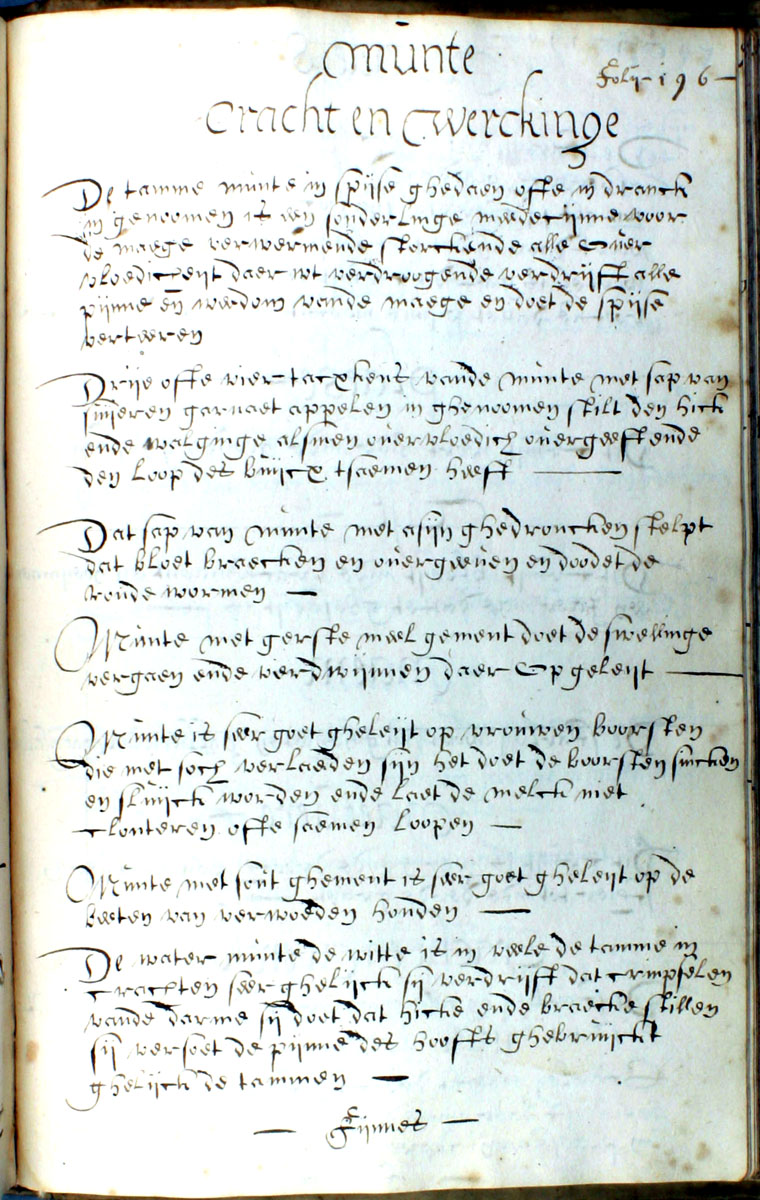 Munte
Folij 196
Cracht en Werckinge
De tamme munte in spijse ghedaen ofte in dranck
in genoomen is een sonderlinge medecijnne voor
de maege verwermende sterckende alle Over
vloedicheijt daer wt verdroogende verdrijft alle
pijnne en weedom vande maege en doet de spijse
verteeren
Drije ofte vier tacxkens vande munte met sap van
suijeren garnaet appelen in ghenoomen stilt den hick
ende walginge alsmen overvloedich overgeeft ende
den loop des buijcx tsaemen heeft
Dat sap van munte met asijn ghedroncken stelpt
dat bloet braecken en overgeeven en doodet de
ronde wormen
Munte met gerste meel gement doet de swellinge
vergaen ende verdwijnnen daer Op geleijt
Munte is seer goet gheleijt op vrouwen boorsten
die met soch verlaeden sijn het doet de boorsten sincken
en sluijck worden ende laet de melck niet
clonteren ofte saemen loopen
Munte met sout ghement is seer goet gheleijt op de
beeten van verwoeden honden
De water munte de witte is in veele de tamme in
crachten seer ghelijck sij verdrijft dat crimpselen
vande darme sij doet dat hicke ende braecke stillen
sij versoet de pijnne des hoofts ghebruijckt
ghelijck de tammen
Fijnnes